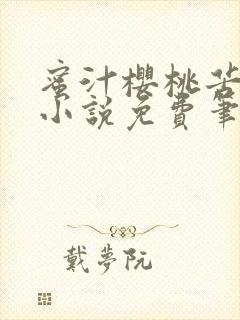 蜜汁櫻桃苦
小說免費筆
戴夢阮